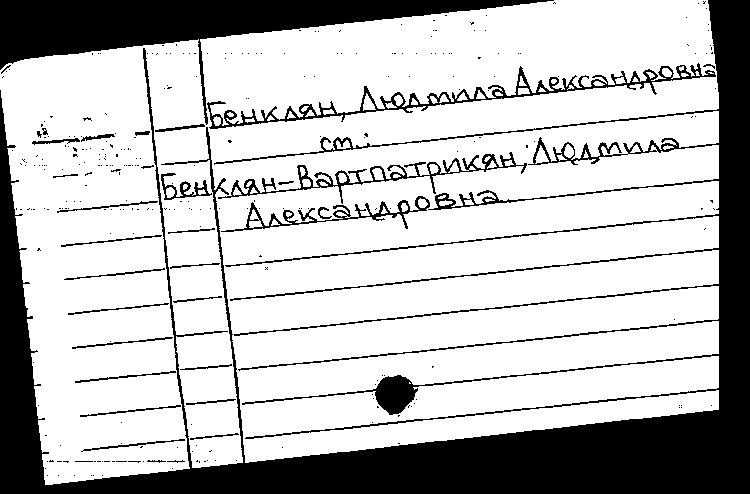 Бенклян, Людмила Александровна
ст.:
Бенклян-Вартпатрикян, Людмила
Александровна